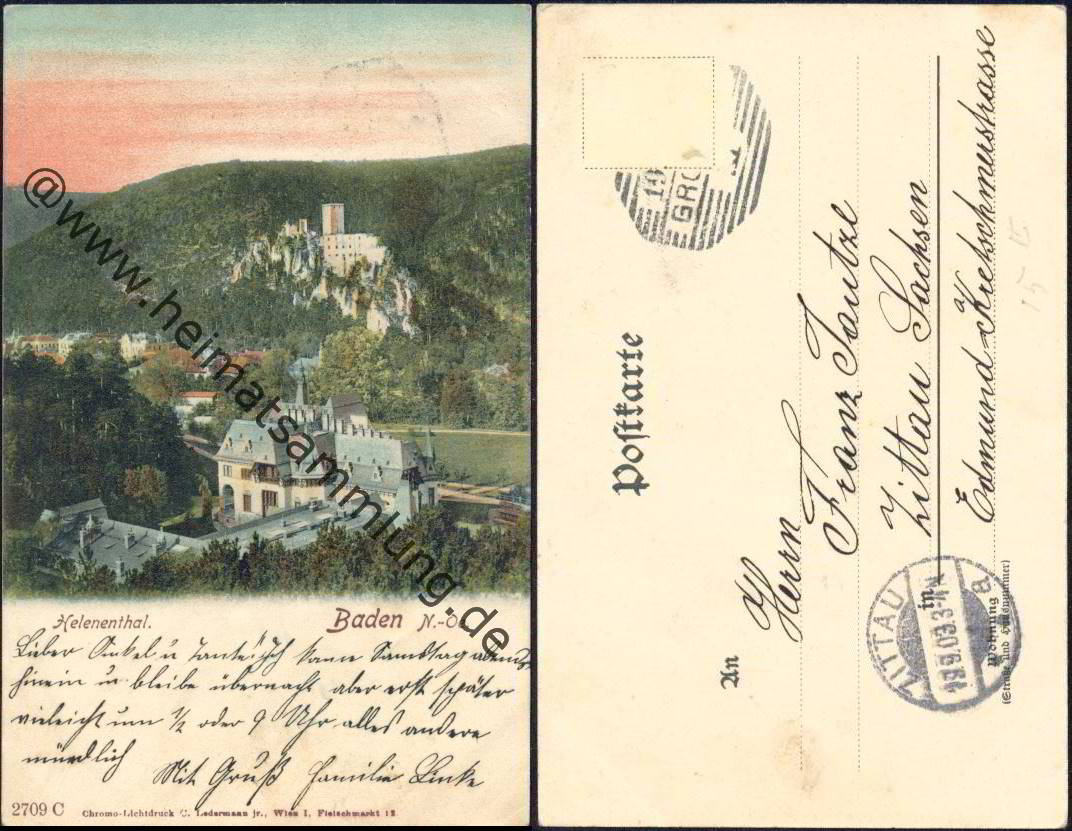 @www.heimatsammlung.de
Helenenthal.
Baden N.-Ö.
Lieber Onkel u Tante! Ich kann Samstag abends
hinein u bleibe übernacht aber erst später
vieleicht um ½ oder 9 Uhr alles andere
mündlich
Mit Gruß Familie Linke
2709 C
Chromo-Lichtdruck C. Ledermann jr., Wien I, Fleischmarkt 12
Postkarte
An
Herrn
Franz Tautze
Zittau Sachsen
in
Edmund Kretschmerstrasse
Wohnung
(Straße und Hausnummer)
GRO
ZITTAU
a